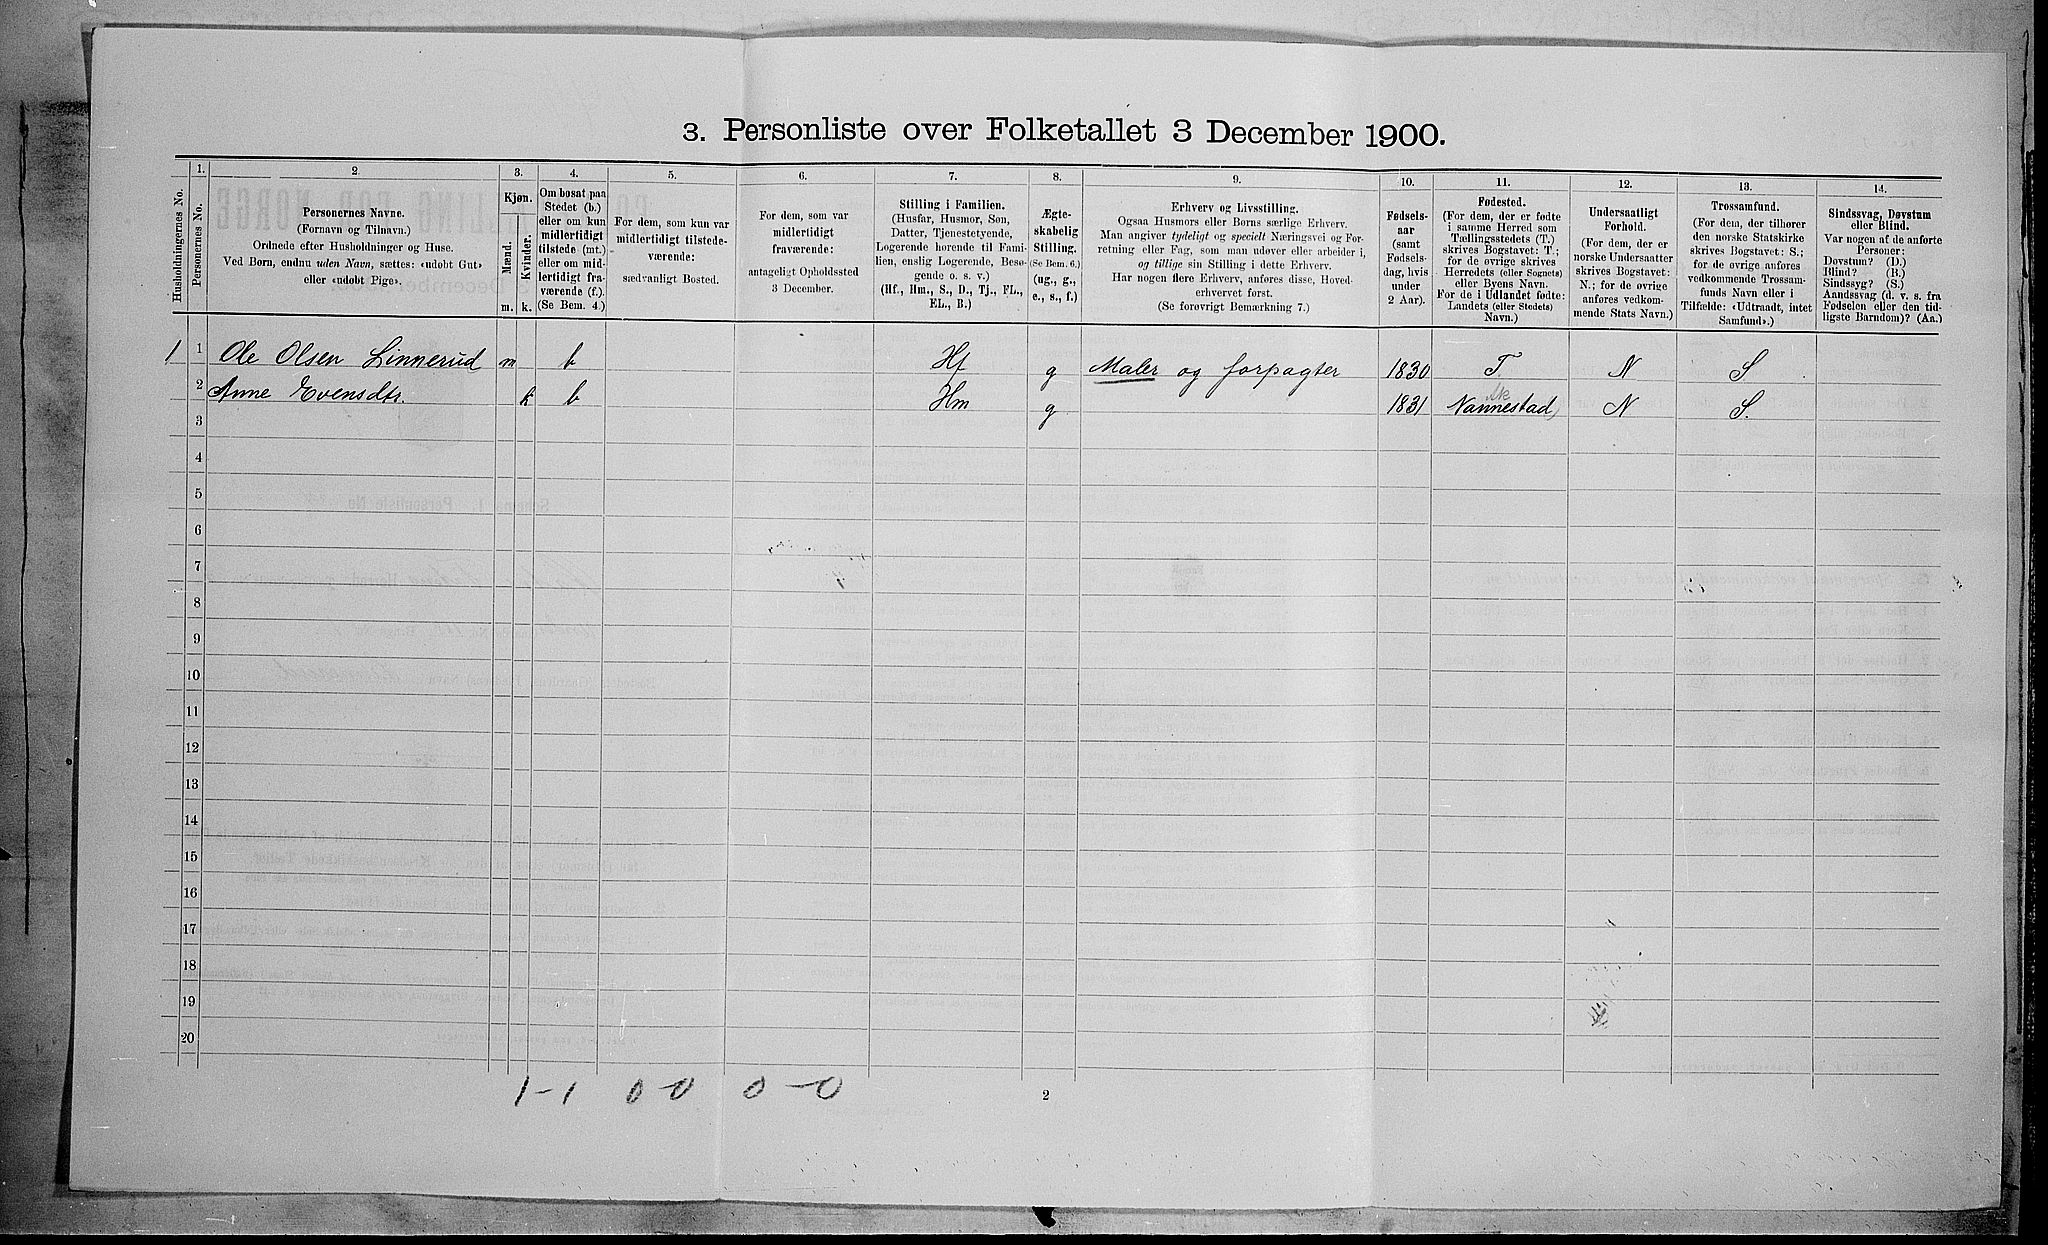 3. Personliste over Folketallet 3 December 1900.
Husholdningernes No.
1.
Personernes No.
2.
Personernes Navne.
(Fornavn og Tilnavn.)
Ordnede efter Husholdninger og Huse.
Ved Børn, endnu uden Navn, sættes: «udøbt Gut»
eller «udøbt Pige».
3.
Kjøn.
Mænd.
Kvinder.
m. k.
4.
Om bosat paa
Stedet (b.)
eller om kun
midlertidigt
tilstede (mt.)
eller om mid-
lertidigt fra-
værende (f.)
(Se Bem. 4.)
5.
For dem, som kun var
midlertidigt tilstede-
værende:
sædvanligt Bosted.
6.
For dem, som var
midlertidigt
fraværende:
antageligt Opholdssted
3 December.
7.
Stilling i Familien.
(Husfar, Husmor, Søn,
Datter, Tjenestetyende,
Logerende hørende til Fami-
lien, enslig Logerende, Besø-
gende o. s. v.)
(Hf., Hm., S., D., Tj., FL.,
EL., B.)
8.
Ægte-
skabelig
Stilling.
(Se Bem. 6.)
(ug., g.,
e., s., f.)
9.
Erhverv og Livsstilling.
Ogsaa Husmors eller Børns særlige Erhverv.
Man angiver tydeligt og specielt Næringsvei og For-
retning eller Fag, som man udøver eller arbeider i,
og tillige sin Stilling i dette Erhverv.
Har nogen flere Erhverv, anføres disse, Hoved-
erhvervet først.
(Se forøvrigt Bemærkning 7.)
10.
Fødsels-
aar
(samt
Fødsels-
dag, hvis
under
2 Aar).
11.
Fødested.
(For dem, der er fødte
i samme Herred som
Tællingsstedets (T.)
skrives Bogstavet: T.;
for de øvrige skrives
Herredets (eller Sognets)
eller Byens Navn.
For de i Udlandet fødte:
Landets (eller Stedets)
Navn.)
12.
Undersaatligt
Forhold.
(For dem, der er
norske Undersaatter
skrives Bogstavet:
N.; for de øvrige
anføres vedkom-
mende Stats Navn.)
13.
Trossamfund.
(For dem, der tilhører
den norske Statskirke
skrives Bogstavet: S.;
for de øvrige anføres
vedkommende Trossam-
funds Navn eller i
Tilfælde: «Udtraadt, intet
Samfund».)
14.
Sindssvag, Døvstum
eller Blind.
Var nogen af de anførte
Personer:
Døvstum? (D.)
Blind? (B.)
Sindssyg? (S.)
Aandssvag (d. v. s. fra
Fødselen eller den tid-
ligste Barndom)? (Aa.)
1 1 Ole Olsen Linnerud m b Hf g Maler og forpagter 1830 T. N S
2 Anne Evensdtr. k b Hm g 1831 Nannestad N S.
3
4
5
6
7
8
9
10
11
12
13
14
15
16
17
18
19
20
1-1 0-0 0-0
2